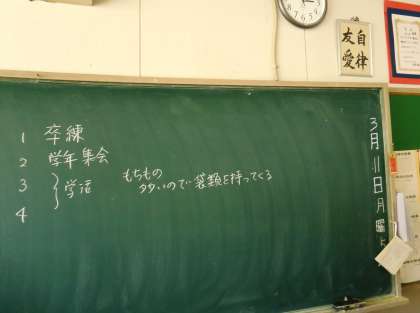 自律
友愛
1 卒練
2 学年集会
3 学活
4
もちもの
多いので袋類を持ってくる
3月11日月曜